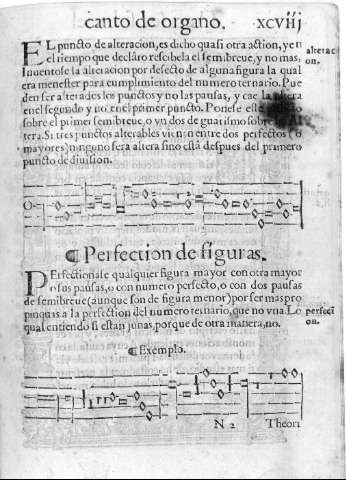 canto de organo. xcviij
EL puncto de alteracion, es dicho quasi otra action, y en
el tiempo que declaro rescibela el semibreue, y no mas.
Inuentose la alteracion por defecto de alguna figura la qual
era menester para cumplimiento del numero ternario. Pue
den ser alterados los punctos y no las pausas, y cae la altera
en el segundo y no en el primer puncto. Ponese este
sobre el primer semibreue, o vn dos de guarismo sobre
tera. Si tres punctos alterables vienen entre dos perfectos (o
mayores) ninguno sera altera sino està despues del primero
puncto de diuision.
alteraci
on.
¶ Perfection de figuras.
PErfectionase qualquier figura mayor con otra mayor
o sus pausas, o con numero perfecto, o con dos pausas
de semibreue (aunque son de figura menor) por ser mas pro
pinquas a la perfection del numero ternario, que no vna. Lo
qual entiendo si estan juntas, porque de otra manera, no.
perfecti
on.
¶ Exemplo.
N 2 Theori